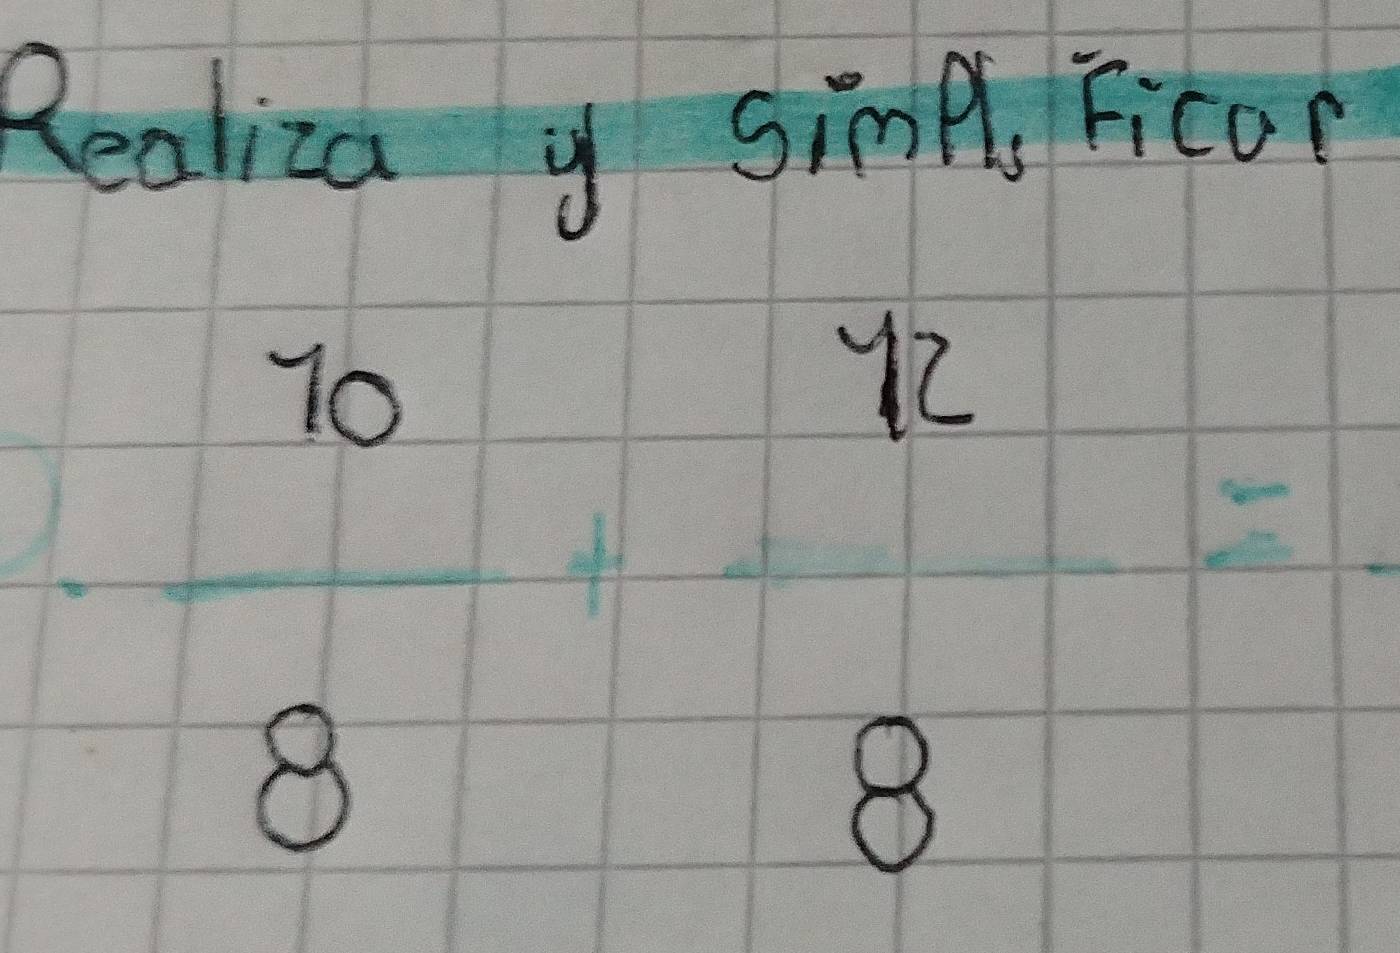 Realiza y Simplificar
10 12
+ =
8 8